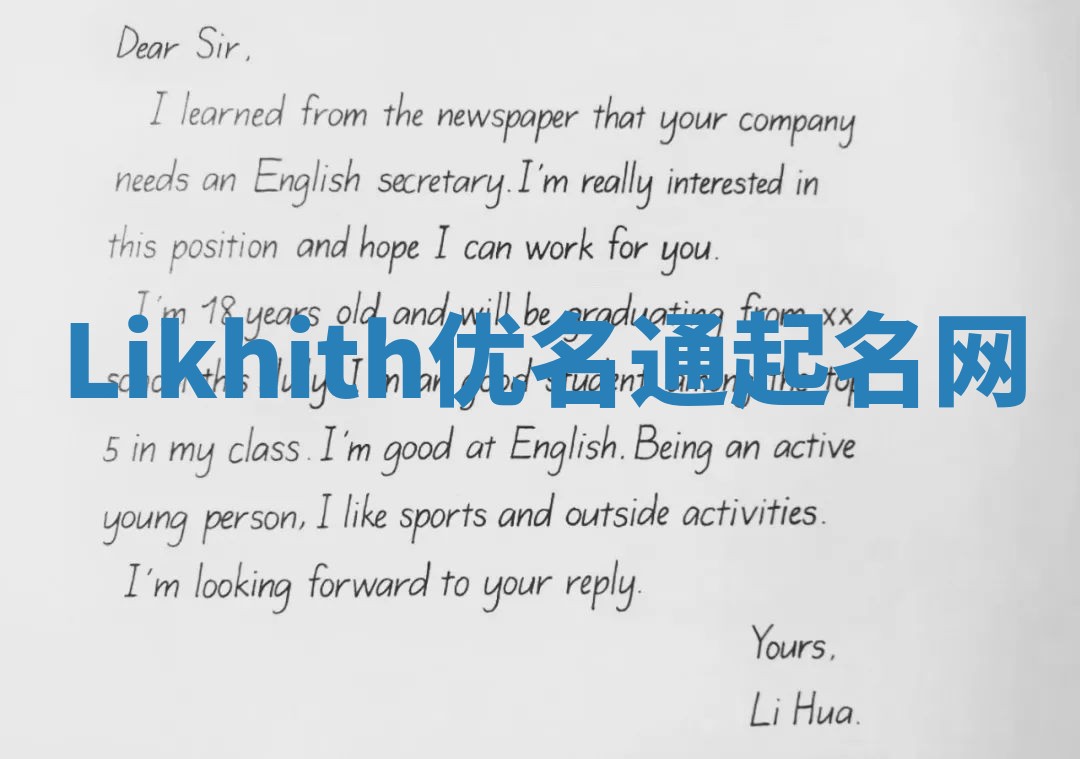 Dear Sir,
I learned from the newspaper that your company
needs an English secretary. I'm really interested in
this position and hope I can work for you.
I'm 18 years old and will be graduating from xx
Likhith优名通起名网
school this July. I'm an good student among the top
5 in my class. I'm good at English. Being an active
young person, I like sports and outside activities.
I'm looking forward to your reply.
Yours,
Li Hua.